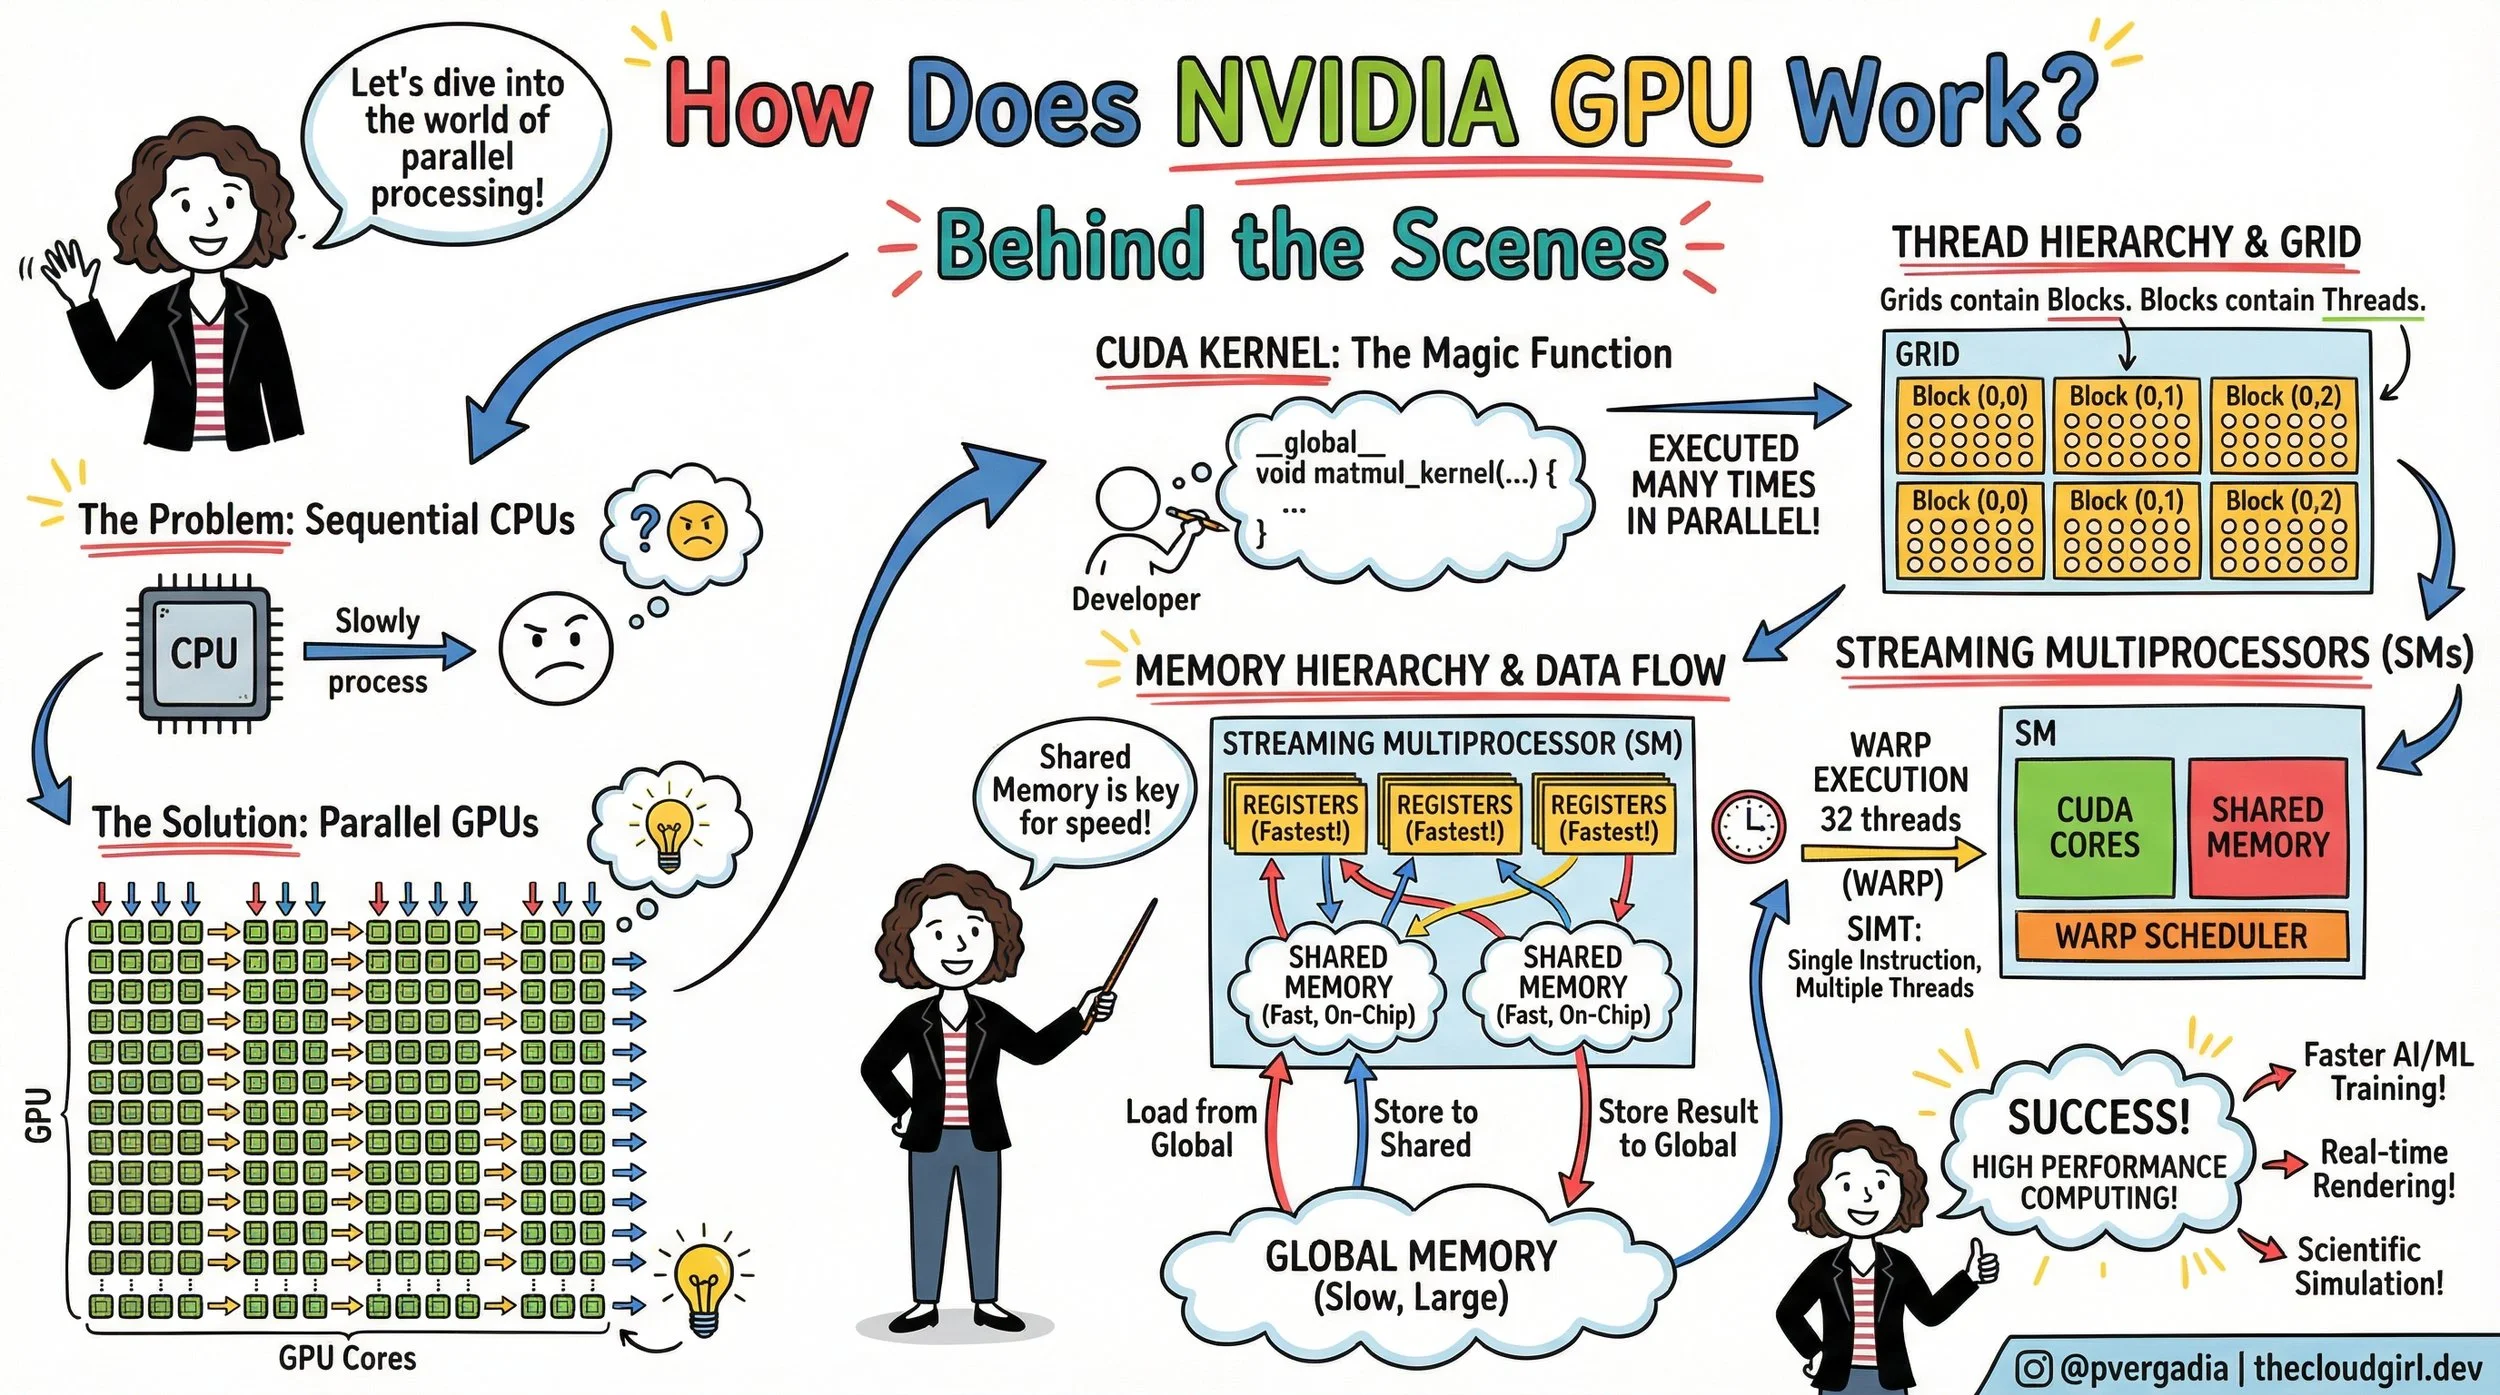 Let's dive into
the world of
parallel
processing!
How Does NVIDIA GPU Work?
Behind the Scenes
The Problem: Sequential CPUs
CPU
Slowly
process
?
The Solution: Parallel GPUs
GPU
GPU Cores
CUDA KERNEL: The Magic Function
__global__
void matmul_kernel(...) {
...
}
Developer
EXECUTED
MANY TIMES
IN PARALLEL!
THREAD HIERARCHY & GRID
Grids contain Blocks. Blocks contain Threads.
GRID
Block (0,0) Block (0,1) Block (0,2)
Block (0,0) Block (0,1) Block (0,2)
MEMORY HIERARCHY & DATA FLOW
Shared
Memory is key
for speed!
STREAMING MULTIPROCESSOR (SM)
REGISTERS REGISTERS REGISTERS
(Fastest!) (Fastest!) (Fastest!)
SHARED
MEMORY
(Fast, On-Chip)
SHARED
MEMORY
(Fast, On-Chip)
Load from
Global
Store to
Shared
Store Result
to Global
GLOBAL MEMORY
(Slow, Large)
STREAMING MULTIPROCESSORS (SMs)
WARP
EXECUTION
32 threads
(WARP)
SIMT:
Single Instruction,
Multiple Threads
SM
CUDA
CORES
SHARED
MEMORY
WARP SCHEDULER
SUCCESS!
HIGH PERFORMANCE
COMPUTING!
Faster AI/ML
Training!
Real-time
Rendering!
Scientific
Simulation!
@pvergadia | thecloudgirl.dev